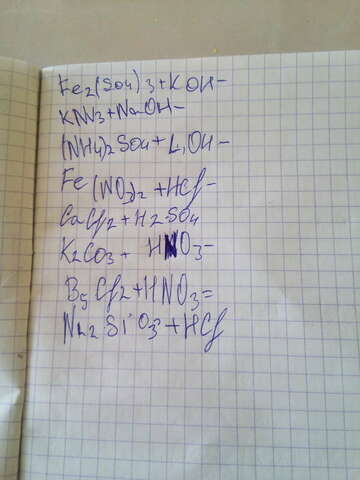 Fe2(SO4)3+KOH-
KNO3+NaOH-
(NH4)2SO4+LiOH-
Fe(NO3)2+HCl-
CaCl2+H2SO4
K2CO3+ HNO3-
B5Cl2+HNO3=
Na2SiO3+HCl